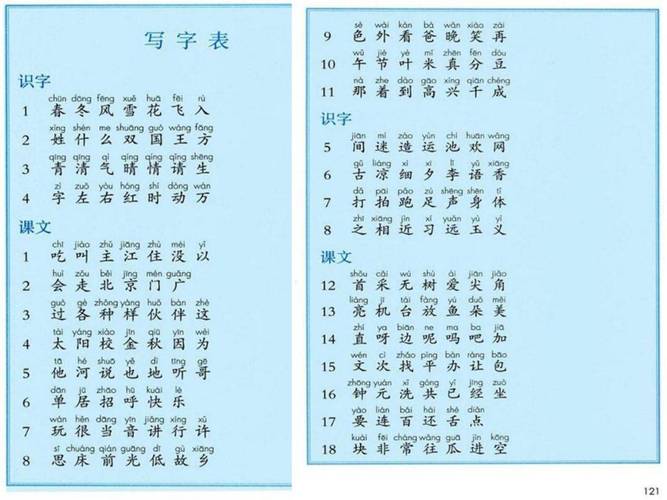 写字表
识字
chūn dōng fēng xuě huā fēi rù
1 春 冬 风 雪 花 飞 入
xìng shén me shuāng guó wáng fāng
2 姓 什 么 双 国 王 方
qīng qīng qì qíng qíng qǐng shēng
3 青 清 气 晴 情 请 生
zì zuǒ yòu hóng shí dòng wàn
4 字 左 右 红 时 动 万
课文
chī jiào zhǔ jiāng zhù méi yǐ
1 吃 叫 主 江 住 没 以
huì zǒu běi jīng mén guǎng
2 会 走 北 京 门 广
guò gè zhǒng yàng huǒ bàn zhè
3 过 各 种 样 伙 伴 这
tài yáng xiào jīn qiū yīn wèi
4 太 阳 校 金 秋 因 为
tā hé shuō yě dì tīng gē
5 他 河 说 也 地 听 哥
dān jū zhāo hū kuài lè
6 单 居 招 呼 快 乐
wán hěn dāng yīn jiǎng xíng xǔ
7 玩 很 当 音 讲 行 许
sī chuáng qián guāng dī gù xiāng
8 思 床 前 光 低 故 乡
sè wài kàn bà wǎn xiào zài
9 色 外 看 爸 晚 笑 再
wǔ jié yè mǐ zhēn fēn dòu
10 午 节 叶 米 真 分 豆
nà zhe dào gāo xìng qiān chéng
11 那 着 到 高 兴 千 成
识字
jiān mí zào yùn chí huān wǎng
5 间 迷 造 运 池 欢 网
gǔ liáng xì xī lǐ yǔ xiāng
6 古 凉 细 夕 李 语 香
dǎ pāi pǎo zú shēng shēn tǐ
7 打 拍 跑 足 声 身 体
zhī xiāng jìn xí yuǎn yù yì
8 之 相 近 习 远 玉 义
课文
shǒu cǎi wú shù ài jiān jiǎo
12 首 采 无 树 爱 尖 角
liàng jī tái fàng yú duǒ měi
13 亮 机 台 放 鱼 朵 美
zhí ya biān ne ma ba jiā
14 直 呀 边 呢 吗 吧 加
wén cì zhǎo píng bàn ràng bāo
15 文 次 找 平 办 让 包
zhōng yuán xǐ gòng yǐ jīng zuò
16 钟 元 洗 共 已 经 坐
yào lián bǎi hái shé diǎn
17 要 连 百 还 舌 点
kuài fēi cháng wǎng guā jìn kōng
18 块 非 常 往 瓜 进 空
121